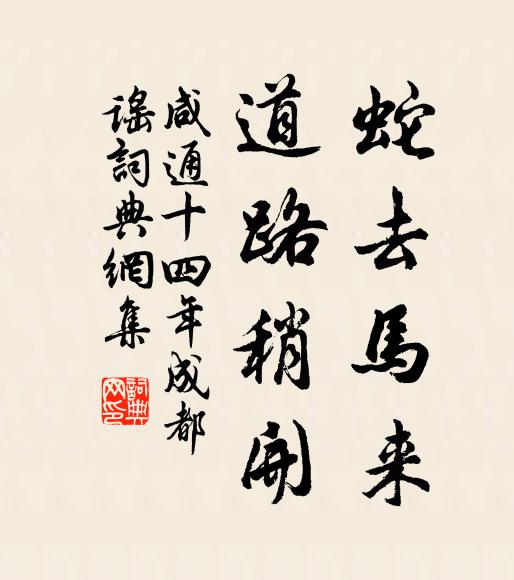 蛇去馬来
道路稍開
咸通十四年成都
謡詞典網集
詞典网印